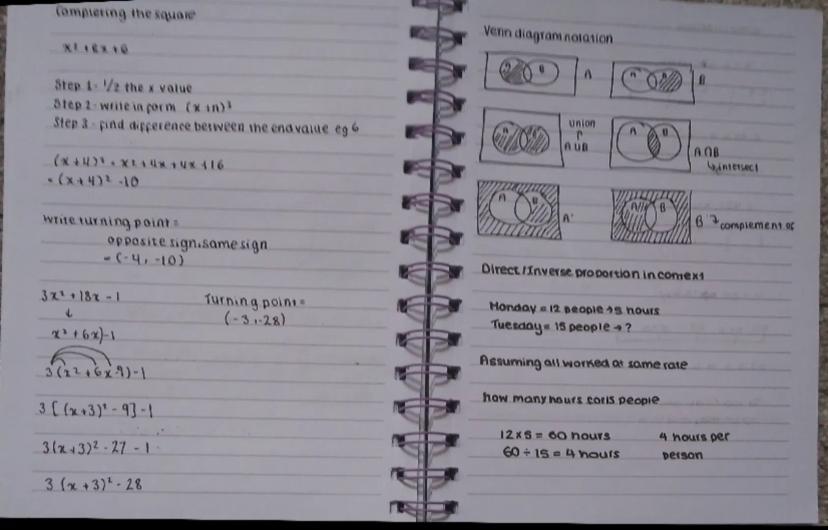 Completing the square
x² + 8x + 6
Step 1 - 1/2 the x value
Step 2 - write in form (x + n)²
Step 3 - find difference between the end value eg 6
(x + 4)² = x² + 4x + 4x + 16
= (x + 4)² - 10
Write turning point =
opposite sign, same sign
= (-4, -10)
3x² + 18x - 1
Turning point =
(-3, -28)
↓
x² + 6x) - 1
3(x² + 6x - 9) - 1
3[(x+3)² - 9] - 1
3(x+3)² - 27 - 1
3(x+3)² - 28
Venn diagram notation
A B A
A B B
A B union
A∪B
A B A∩B
↳intersect
A B A'
A B B' complement of
Direct/Inverse proportion in context
Monday = 12 people → 5 hours
Tuesday = 15 people → ?
Assuming all worked at same rate
how many hours people
12 x 5 = 60 hours
4 hours per
60 ÷ 15 = 4 hours
person